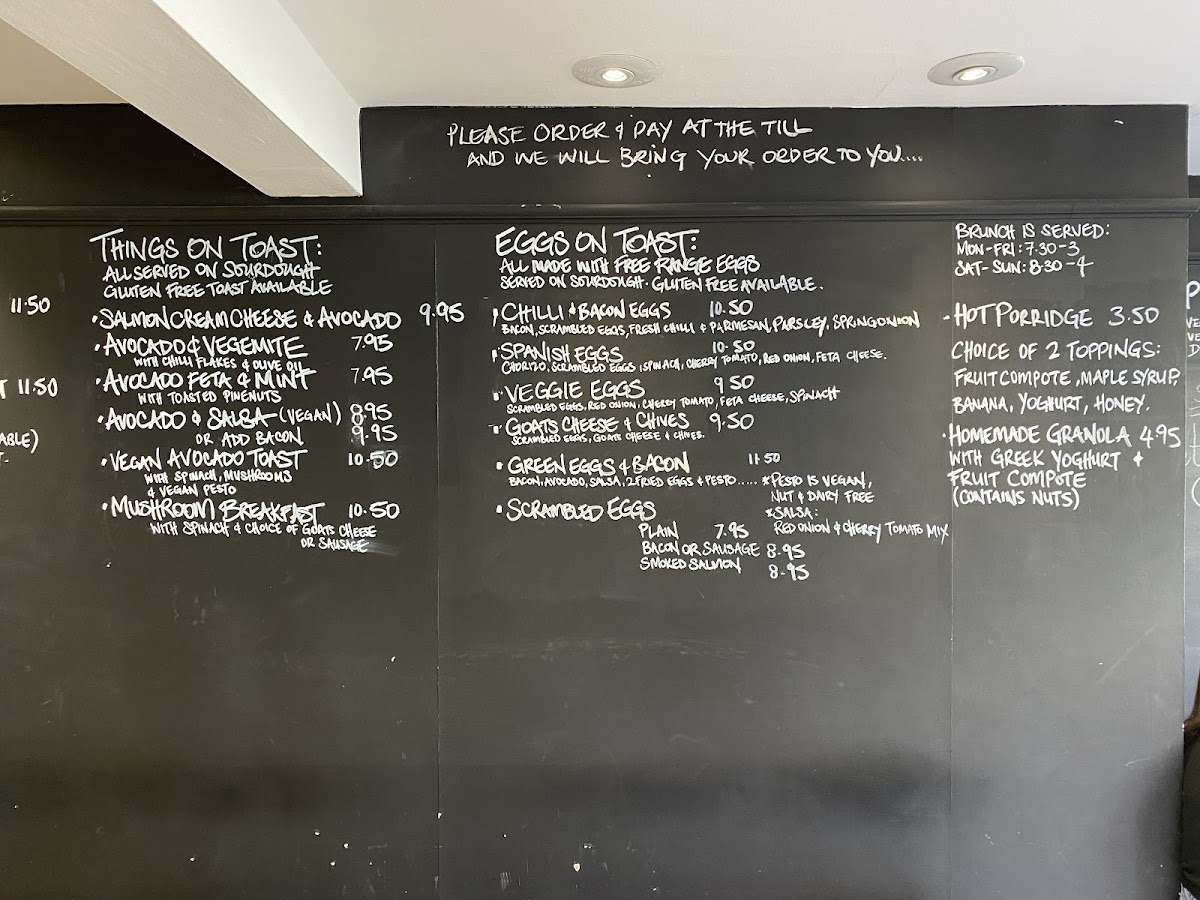 PLEASE ORDER & PAY AT THE TILL
AND WE WILL BRING YOUR ORDER TO YOU....
11.50
11.50
THINGS ON TOAST:
ALL SERVED ON SOURDOUGH
GLUTEN FREE TOAST AVAILABLE
• SALMON CREAM CHEESE & AVOCADO 9.95
• AVOCADO & VEGEMITE 7.95
WITH CHILLI FLAKES & OLIVE OIL
• AVOCADO FETA & MINT 7.95
WITH TOASTED PINENUTS
• AVOCADO & SALSA (VEGAN) 8.95
OR ADD BACON 9.95
• VEGAN AVOCADO TOAST 10.50
WITH SPINACH, MUSHROOMS
& VEGAN PESTO
• MUSHROOM BREAKFAST 10.50
WITH SPINACH & CHOICE OF GOATS CHEESE
OR SAUSAGE
EGGS ON TOAST:
ALL MADE WITH FREE RANGE EGGS
SERVED ON SOURDOUGH. GLUTEN FREE AVAILABLE.
• CHILLI & BACON EGGS 10.50
BACON, SCRAMBLED EGGS, FRESH CHILLI & PARMESAN, PARSLEY, SPRING ONION
• SPANISH EGGS 10.50
CHORIZO, SCRAMBLED EGGS, SPINACH, CHERRY TOMATO, RED ONION, FETA CHEESE.
• VEGGIE EGGS 9.50
SCRAMBLED EGGS, RED ONION, CHERRY TOMATO, FETA CHEESE, SPINACH
• GOATS CHEESE & CHIVES 9.50
SCRAMBLED EGGS, GOATS CHEESE & CHIVES.
• GREEN EGGS & BACON 11.50
BACON, AVOCADO, SALSA, 2 FRIED EGGS & PESTO..... *PESTO IS VEGAN,
NUT & DAIRY FREE
• SCRAMBLED EGGS
*SALSA:
RED ONION & CHERRY TOMATO MIX
PLAIN 7.95
BACON OR SAUSAGE 8.95
SMOKED SALMON 8.95
BRUNCH IS SERVED:
MON-FRI: 7.30-3
SAT-SUN: 8.30-4
• HOT PORRIDGE 3.50
CHOICE OF 2 TOPPINGS:
FRUIT COMPOTE, MAPLE SYRUP,
BANANA, YOGHURT, HONEY.
• HOMEMADE GRANOLA 4.95
WITH GREEK YOGHURT &
FRUIT COMPOTE
(CONTAINS NUTS)